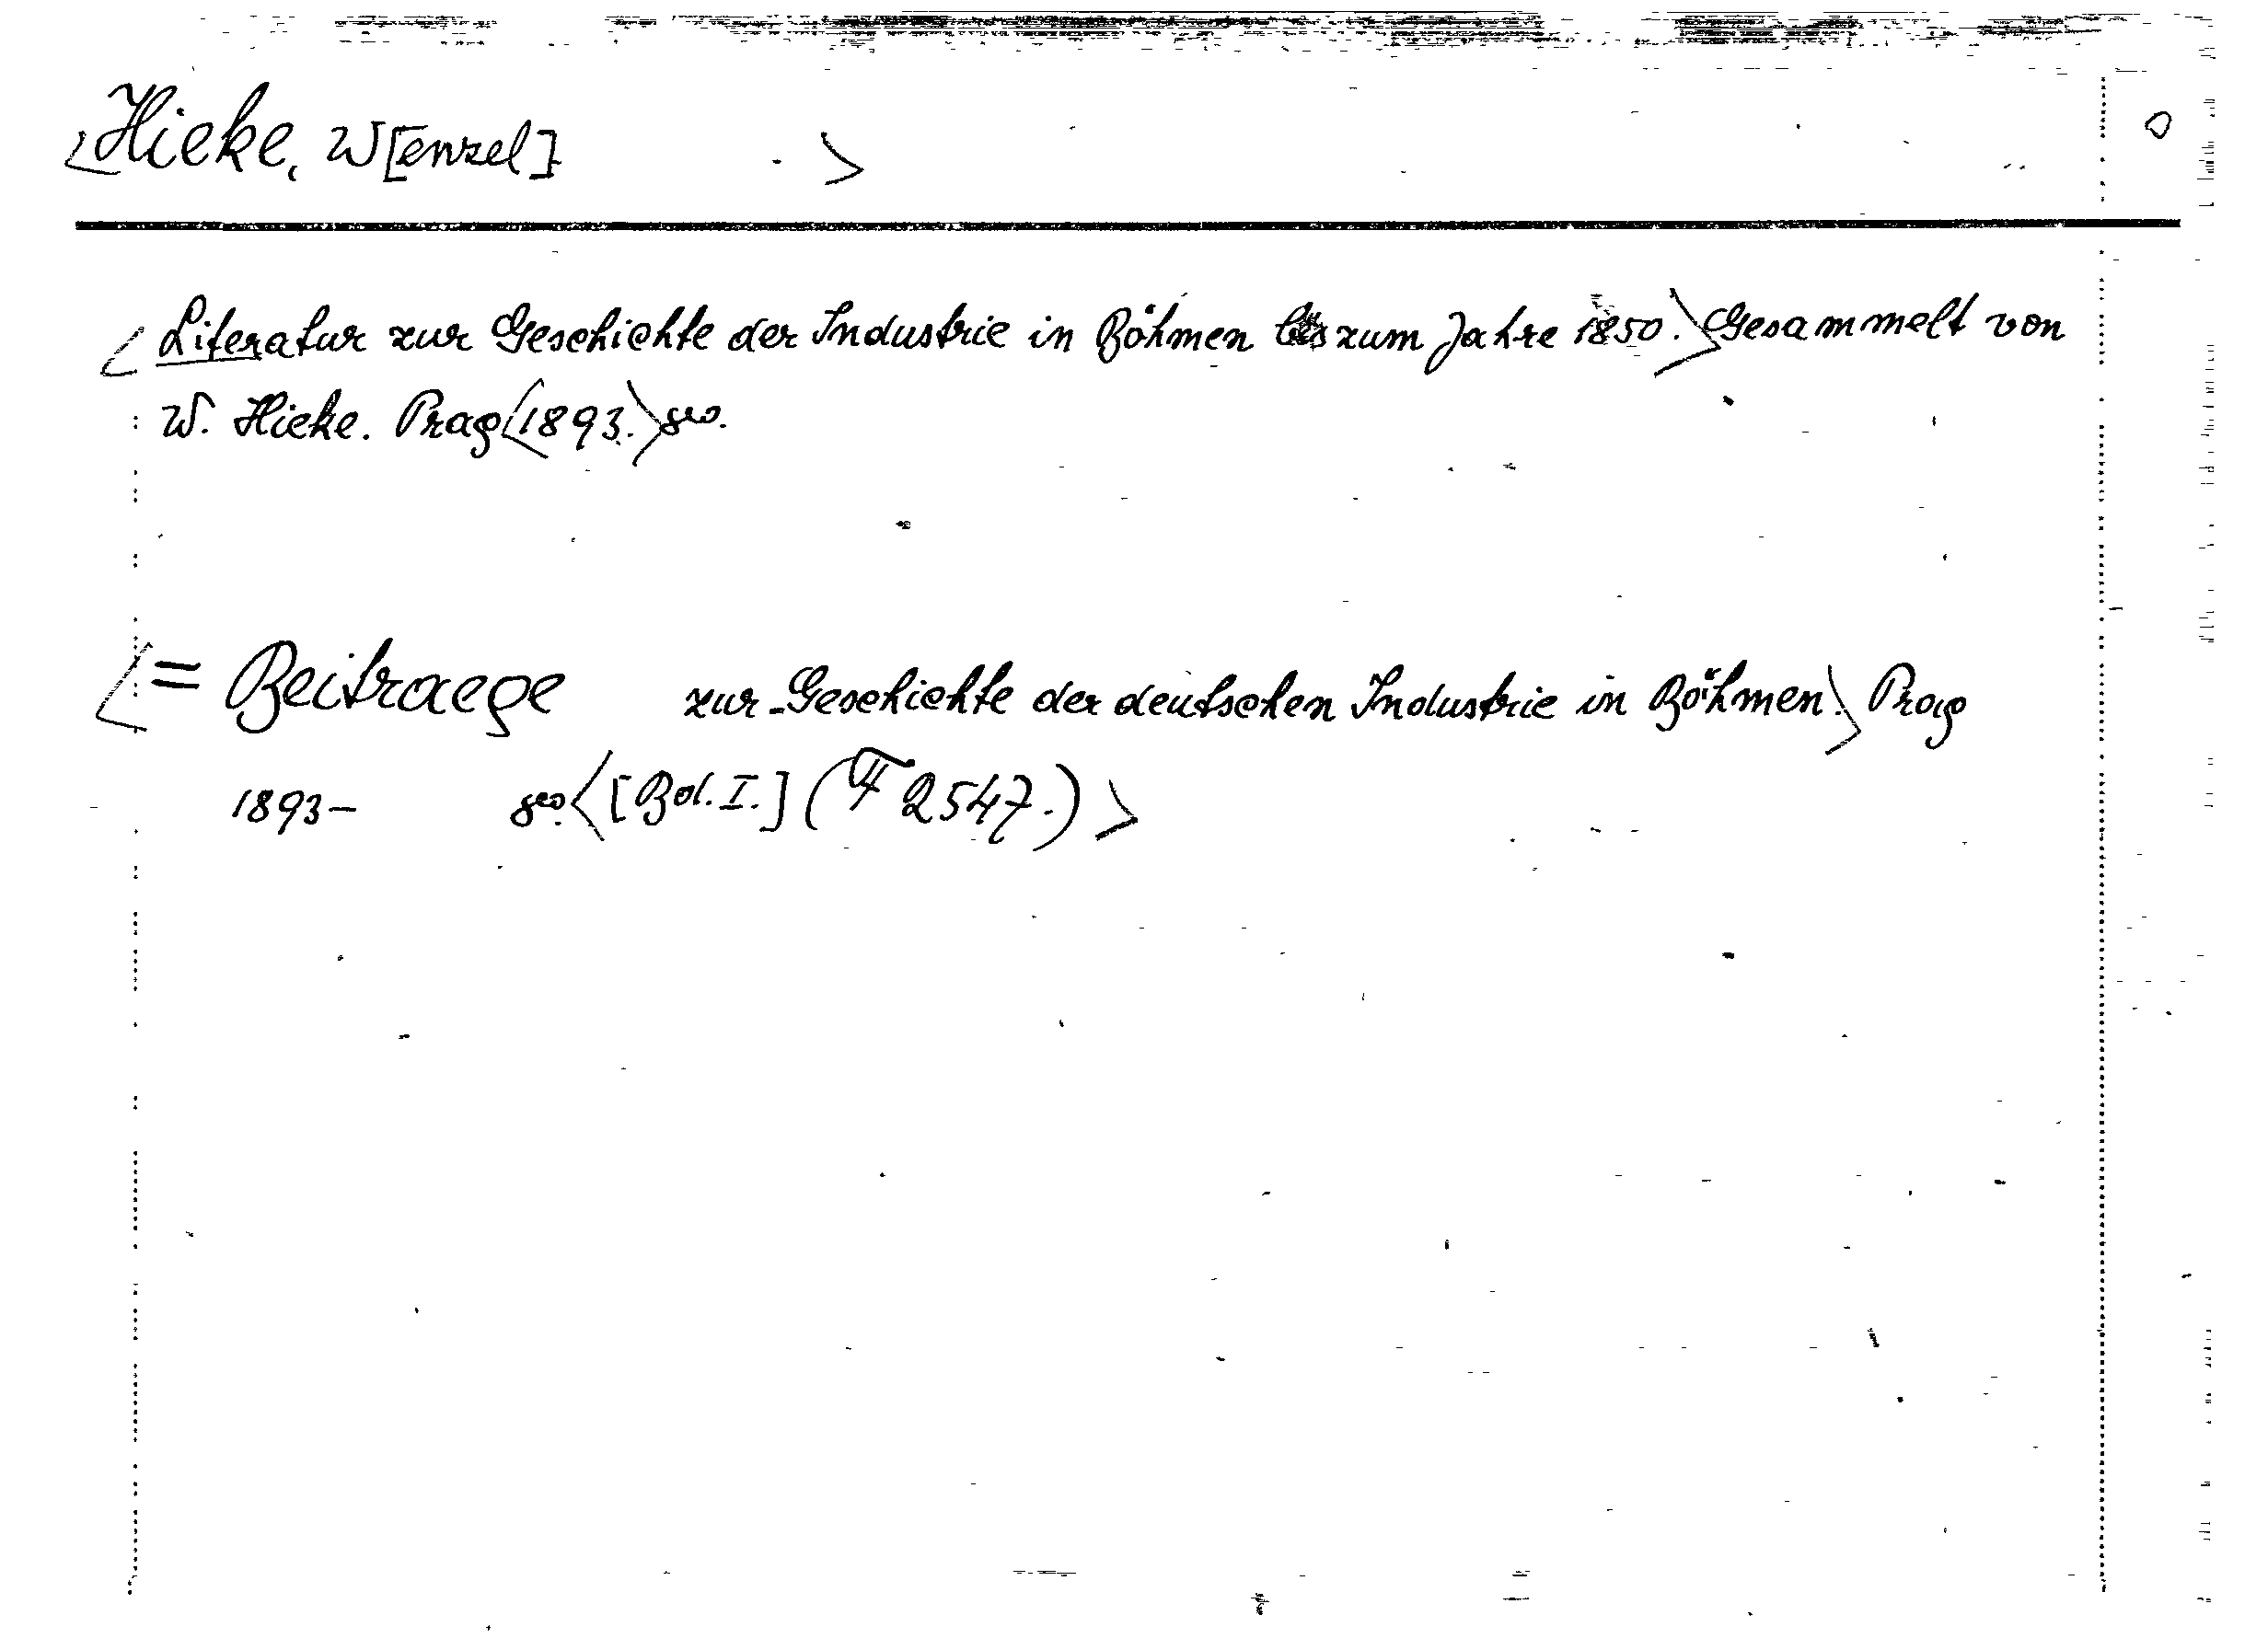 <Hieke, W[enzel] >
<Literatur zur Geschichte der Industrie in Böhmen bis zum Jahre 1850.> Gesammelt von
W. Hieke. Prag <1893.> 8vo.
<= Beitraege zur Geschichte der deutschen Industrie in Böhmen.> Prag
1893– 8vo. <[Bd. I.] (F 2547.)>